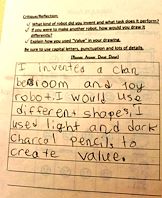 Critique/Reflection:
✓ What kind of robot did you invent and what task does it perform?
✓ If you were to make another robot, how would you draw it
differently?
✓ Explain how you used "Value" in your drawing.
Be sure to use capital letters, punctuation and lots of details.
I invented a clan
bedroom and toy
robot. I would use
different shapes, I
used light and dark
charcal pencils to
create value.